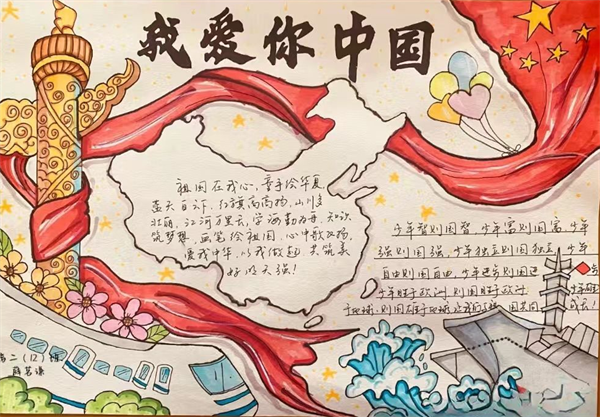 我爱你中国
祖国在我心，童手绘华夏，
蓝天白云下，红旗高高扬，山川多
壮丽，江河万里长，学海勤为舟，知识
筑梦想，画笔绘祖国，心中歌飞扬，
爱我中华，从我做起，共筑美
好明天强！
少年智则国智，少年富则国富，少年
强则国强，少年独立则国独立，少年
自由则国自由，少年进步则国进步，
少年胜于欧洲，则国胜于欧洲，少年雄
于地球，则国雄于地球
二（12）班